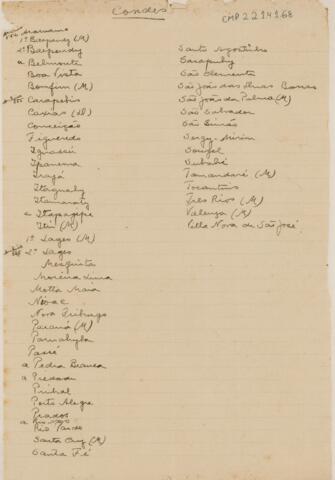 Condes
CMP 2214168
Araruama
1º Baependy (M)
2º Baependy
a Belmonte
Boa Vista
Bomfim (M)
Carapebús
Caxias (D)
Conceição
Figueredo
Iguassú
Ipanema
Irajá
Itaguahy
Itamaraty
c Itapagipe
Itú (M)
1º Lages (M)
2º Lages
Mesquita
Moreira Lima
Motta Maia
Nioac
Nova Friburgo
Paraná (M)
Parnahyba
Passé
a Pedra Branca
a
Pinhal
Porto Alegre
Prados
a
Rio Pardo
Santa Cruz (M)
Santa Fé
Santo Agostinho
Sarapuhy
São Clemente
São João das Duas Barras
São João da Palma (M)
São Salvador
São Simão
Sergy Mirim
Souzel
Subahé
Tamandaré (M)
Tocantins
Tres Rios (M)
Valença (M)
Villa Nova de São José